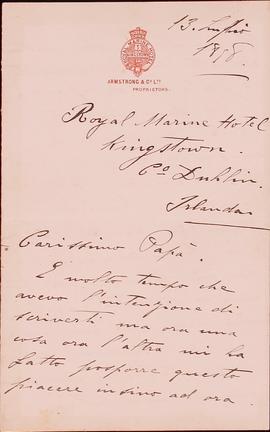 13. Luglio
1898.
ROYAL MARINE HOTEL
KINGSTOWN
ARMSTRONG & Co. LTD
PROPRIETORS.
Royal Marine Hotel
Kingstown.
Co Dublin.
Irlanda
Carissimo Papà.
È molto tempo che
avevo l'intenzione di
scriverti ma ora una
cosa ora l'altra mi ha
fatto posporre questo
piacere insino ad ora.